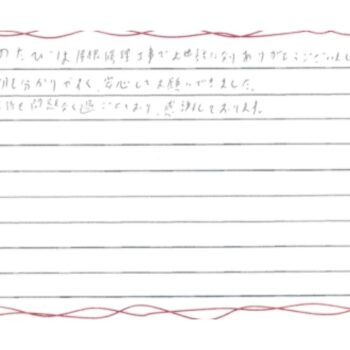 のたびは屋根修理工事でお世話になりありがとうございまし
明も分かりやすく、安心してお願いできました。
後も問題なく過ごせており、感謝しております。